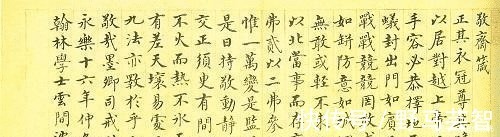 敬齋箴
正其衣冠尊
以居對越上
手容必恭擇地
蟻封出門如賓
戰戰兢兢罔敢
如缾防意如
無敢或輕不
以北當事而存
弗貳以二弗參
惟一萬變是監
是曰持敬動靜
交正須臾有間
不火而熱不氷
有差天壤易處
九法亦斁於乎
敬哉墨卿司戒
永樂十六年仲冬
翰林學士雲間沈